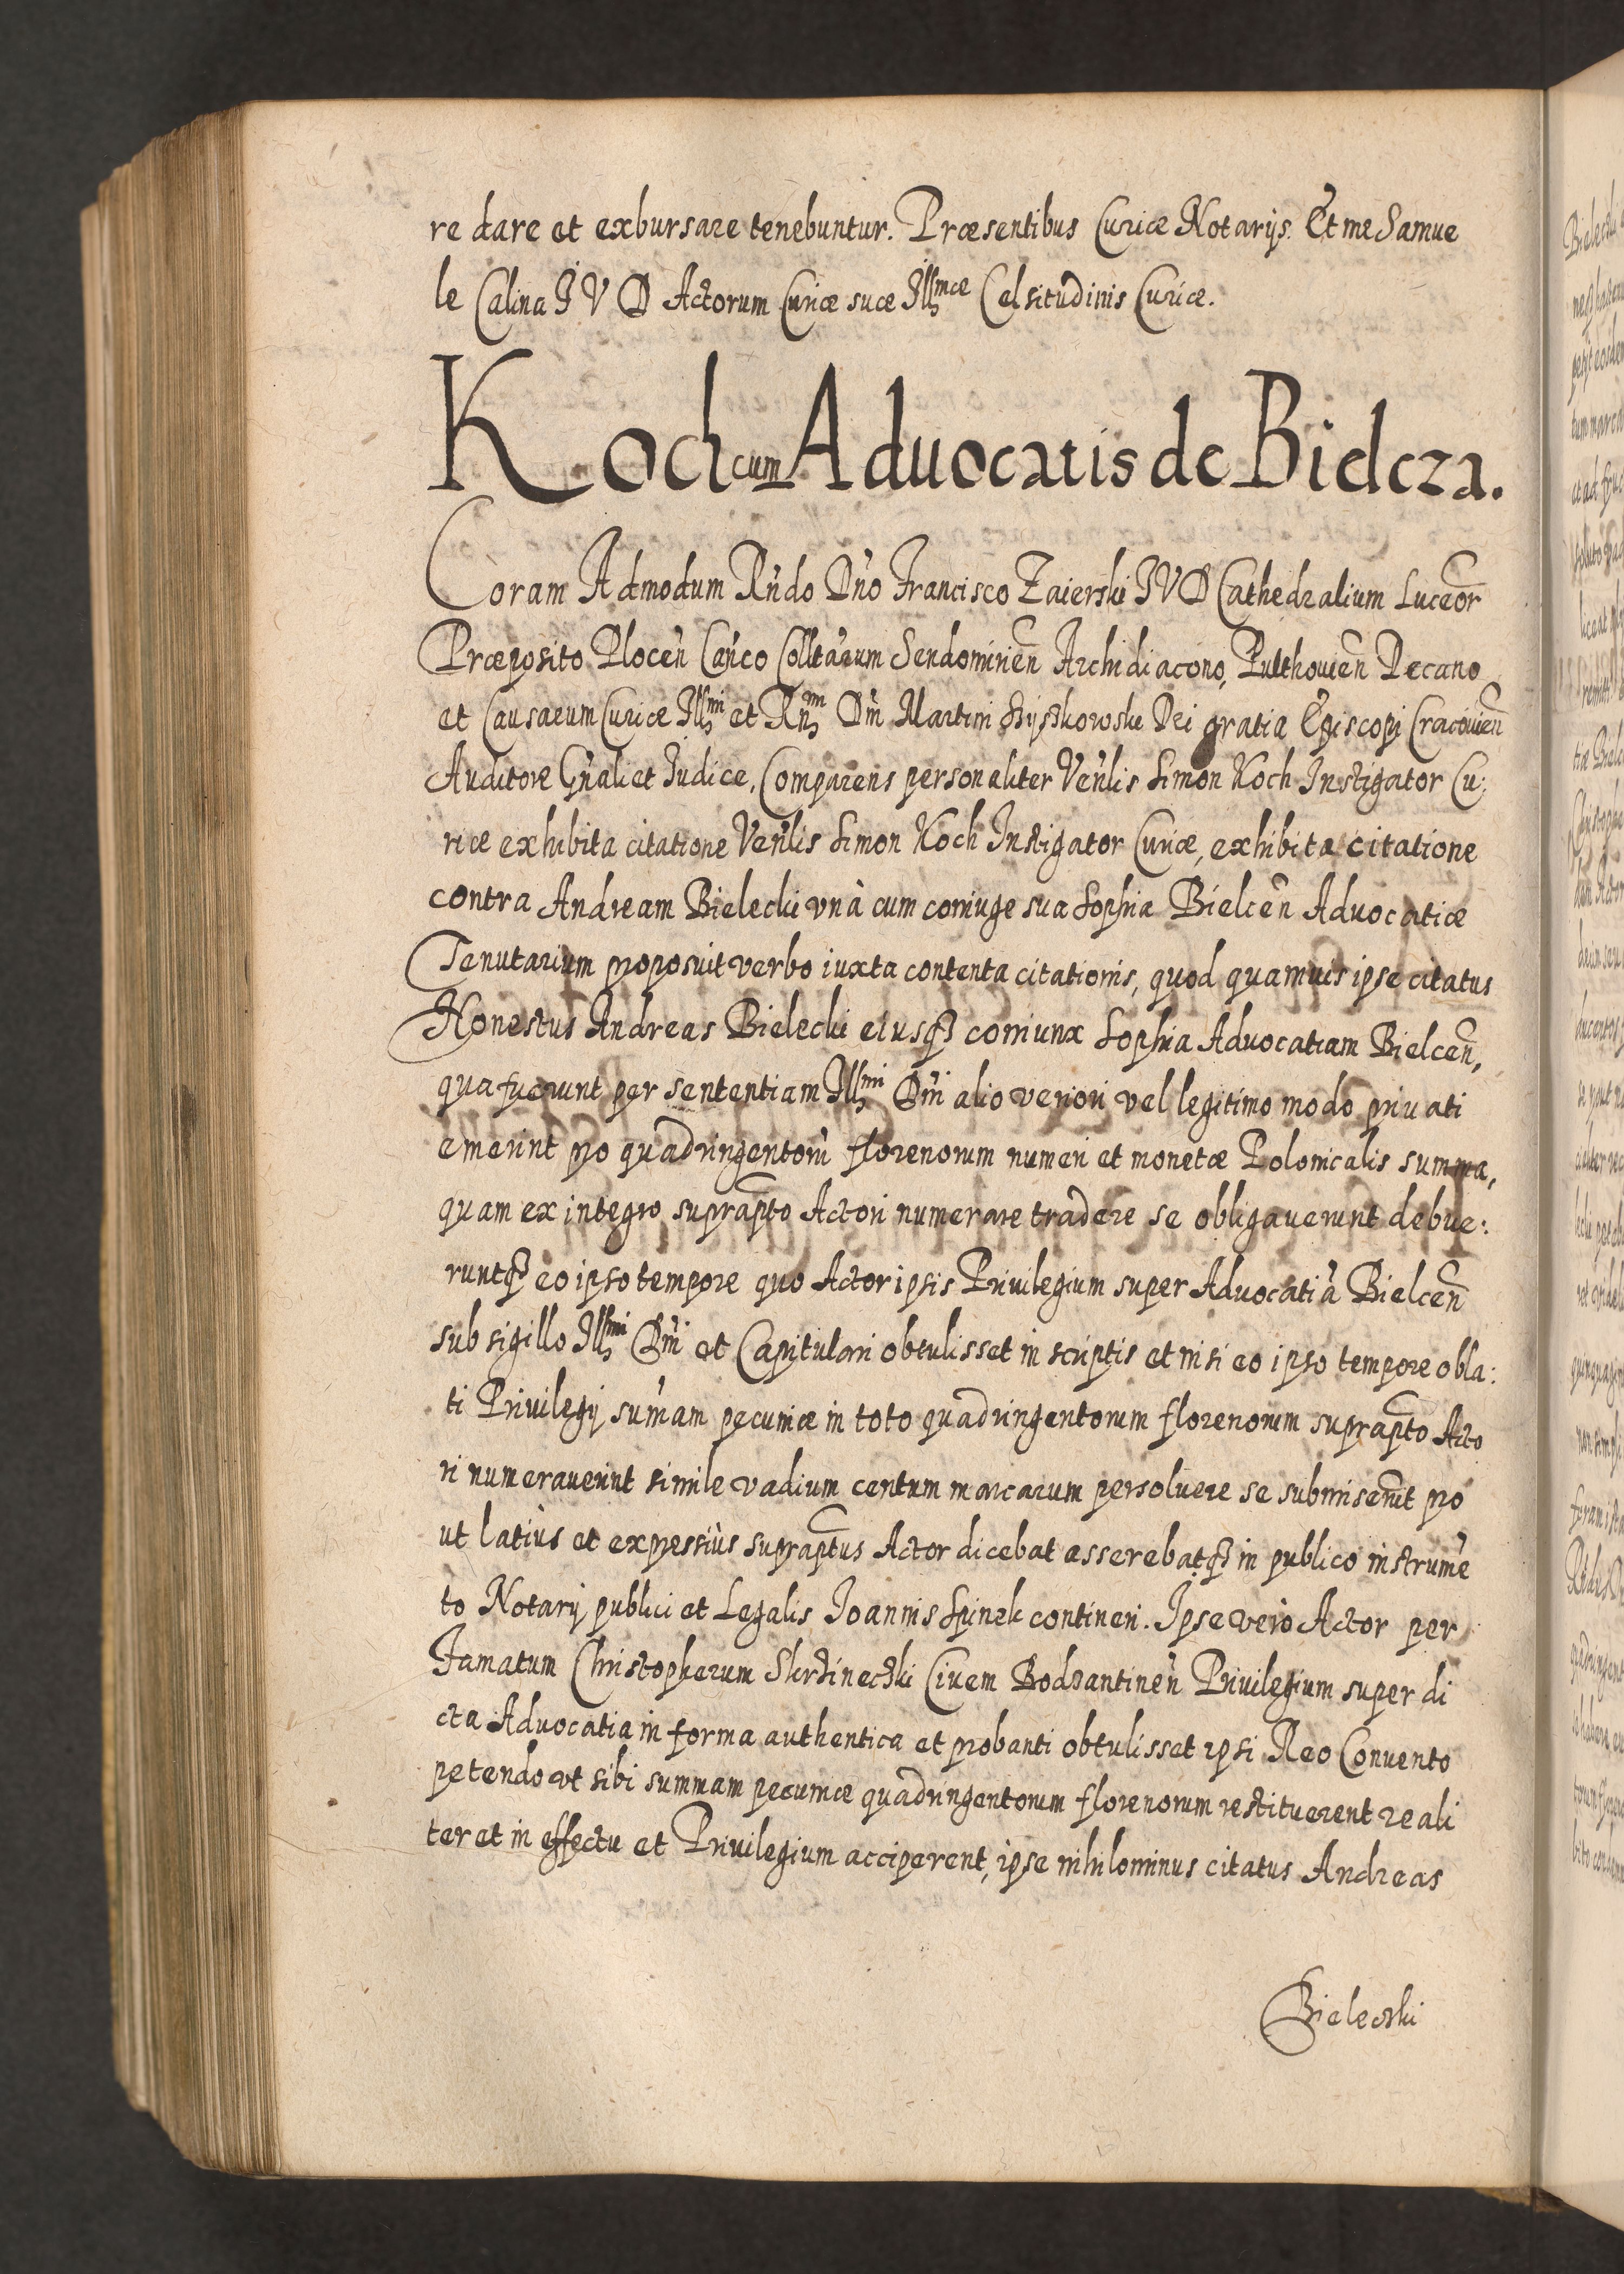 re dare et exbursare tenebuntur. Præsentibus Curiæ Notarijs. Et me Samue
le Calina I V D Actorum Curiæ suæ Illmæ Celsitudinis Curiæ.
Koch cum Aduocatis de Bielcza.
Coram Admodum Rńdo Dńo Francisco Zaierski I V D Cathedralium Luceor
Præposito Plocen Cańco Colltarum Sendomirien Archidiacono, Pulthouien Decano
et Causarum Curiæ Illmi et Rńmi Dńi Martini Szyszkowski Dei gratia Episcopi Cracouien
Auditore Gńali et Iudice, Comparens personaliter Veńlis Simon Koch Instigator Cu:
riæ exhibita citatione Veńlis Simon Koch Instigator Curiæ, exhibita citatione
contra Andream Bielecki vnà cum coniuge sua Sophia Bielcen Aduocatiæ
Tenutarium proposuit verbo iuxta contenta citationis, quod quamuis ipse citatus
Honestus Andreas Bielecki eiusq3 coniunx Sophia Aduocatiam Bielcen,
qua fuerunt per sententiam Illmi Dńi alio veriori vel legitimo modo priuati
emerint pro quadringentorū florenorum numeri et monetæ Polonicalis summa,
quam ex integro suprapto Actori numerare tradere se obligauerunt debue:
runtq3 eo ipso tempore quo Actor ipsis Priuilegium super Aduocatiâ Bielcen
sub sigillo Illmi Dńi et Capitulari obtulisset in scriptis et nisi eo ipso tempore obla:
ti Priuilegij sum̄am pecuniæ in toto quadringentorum florenorum suprapto Acto
ri numerauerint simile vadium centum marcarum persoluere se submiserūt pro
ut latiùs et expressiùs supraptus Actor dicebat asserebatq3 in publico instrumē
to Notarij publici et Legalis Ioannis Spinek contineri. Ipse verò Actor per
Famatum Christopherum Skrzinecki Ciuem Bodzantinen Priuilegium super di
cta Aduocatia in forma authentica et probanti obtulisset ipsi Reo Conuento
petendo vt sibi summam pecuniæ quadringentorum florenorum restituerent reali
ter et in effectu et Priuilegium acciperent, ipse nihilominus citatus Andreas
Bielecski